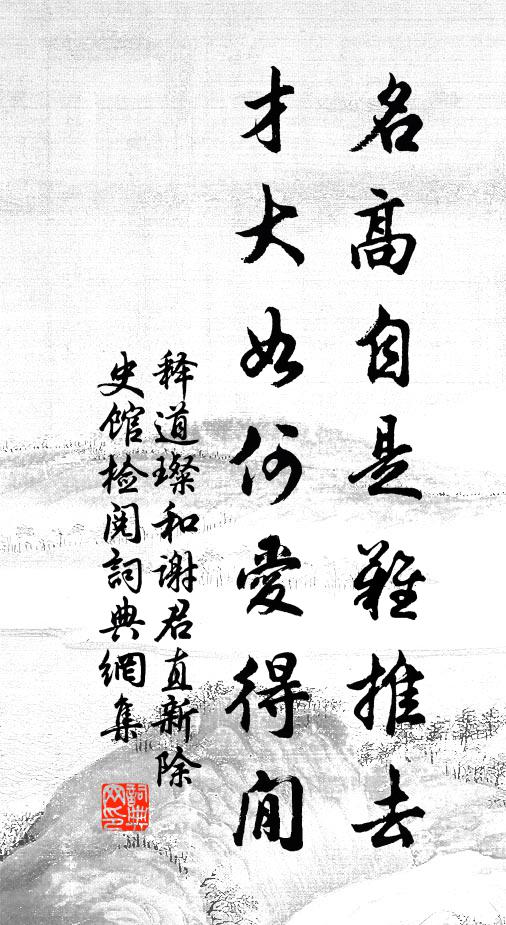 名高自是難推去
才大如何愛得閒
释道璨和谢君直新除
史馆检阅詞典網集